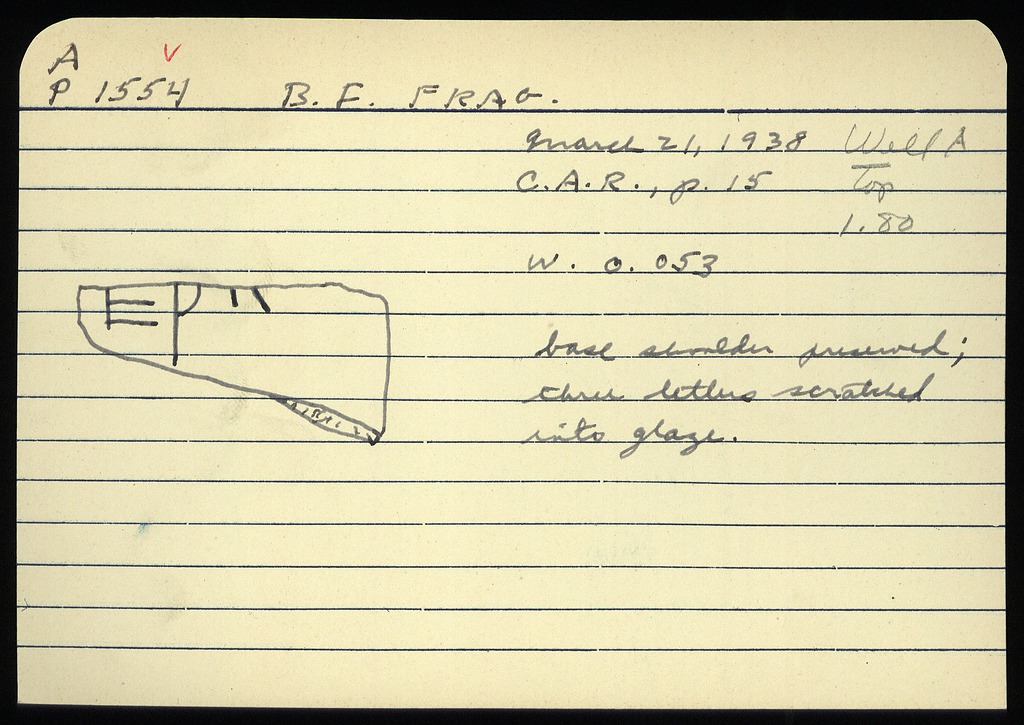 A V
P 1554 B. F. FRAG.
March 21, 1938 Well A
C.A.R., p. 15 Top
1.80
W. 0.053
ΕΡ
base shoulder preserved;
three letters scratched
into glaze.